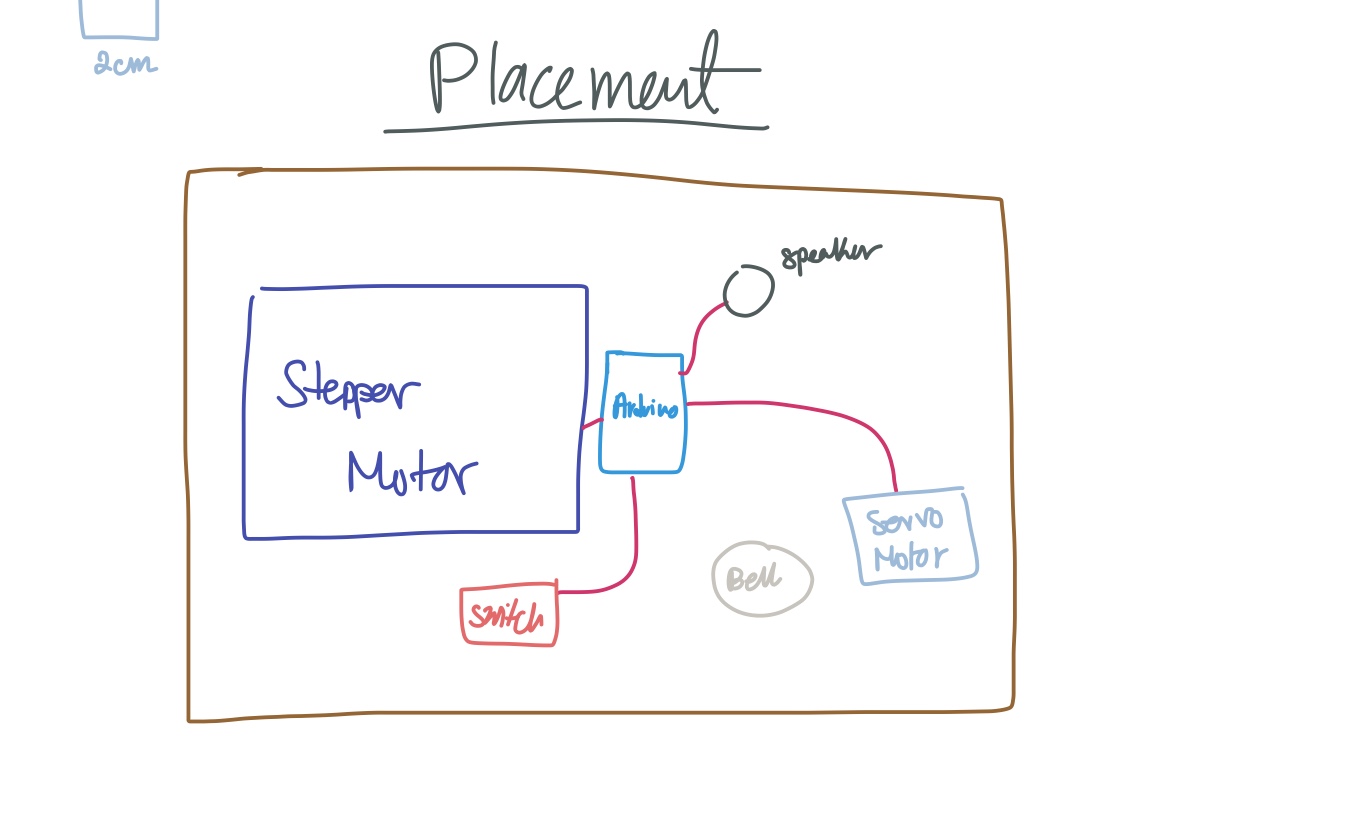 2cm
Placement
speaker
Stepper
Motor
Arduino
Servo
Motor
Bell
Switch